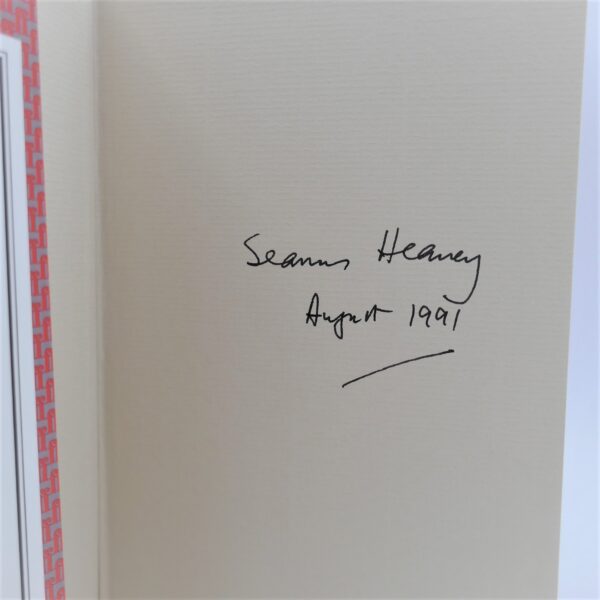 Seamus Heaney
August 1991